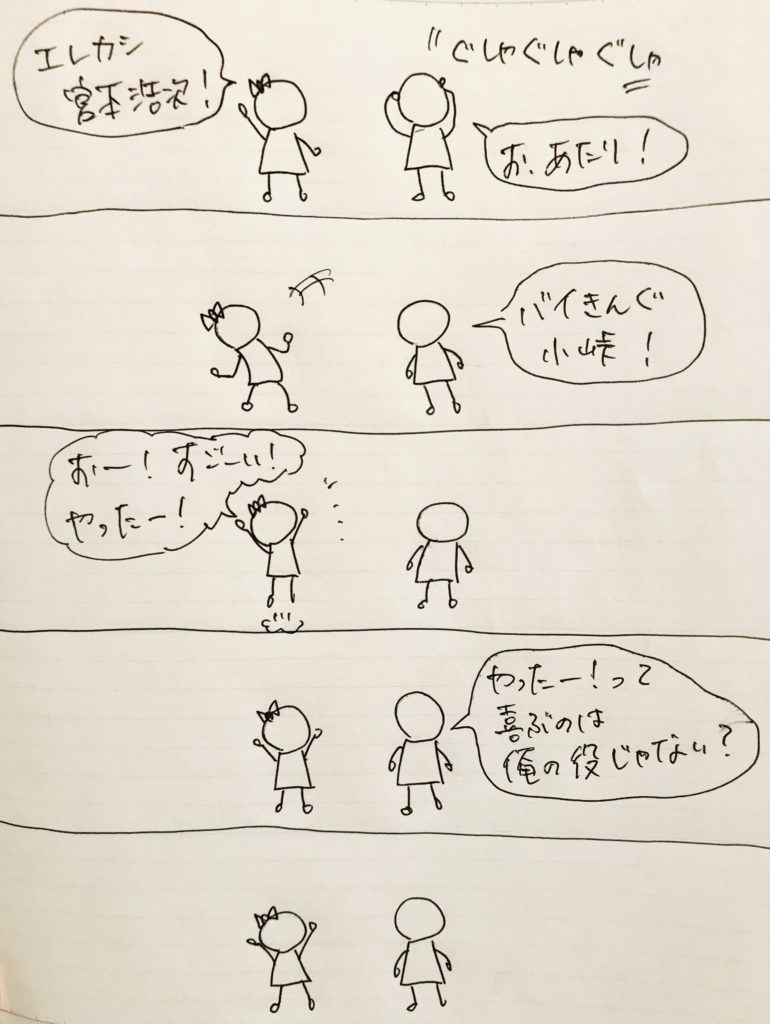 エレカシ
宮本浩次！
"ぐしゃぐしゃぐしゃ
お、あたり！
バイきんぐ
小峠！
おー！すごーい！
やったー！
やったー！って
喜ぶのは
俺の役じゃない？